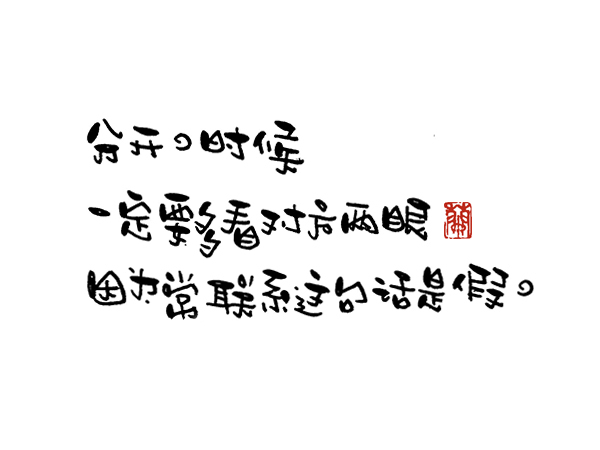 分开の时候
一定要多看对方两眼
因为常联系这句话是假の